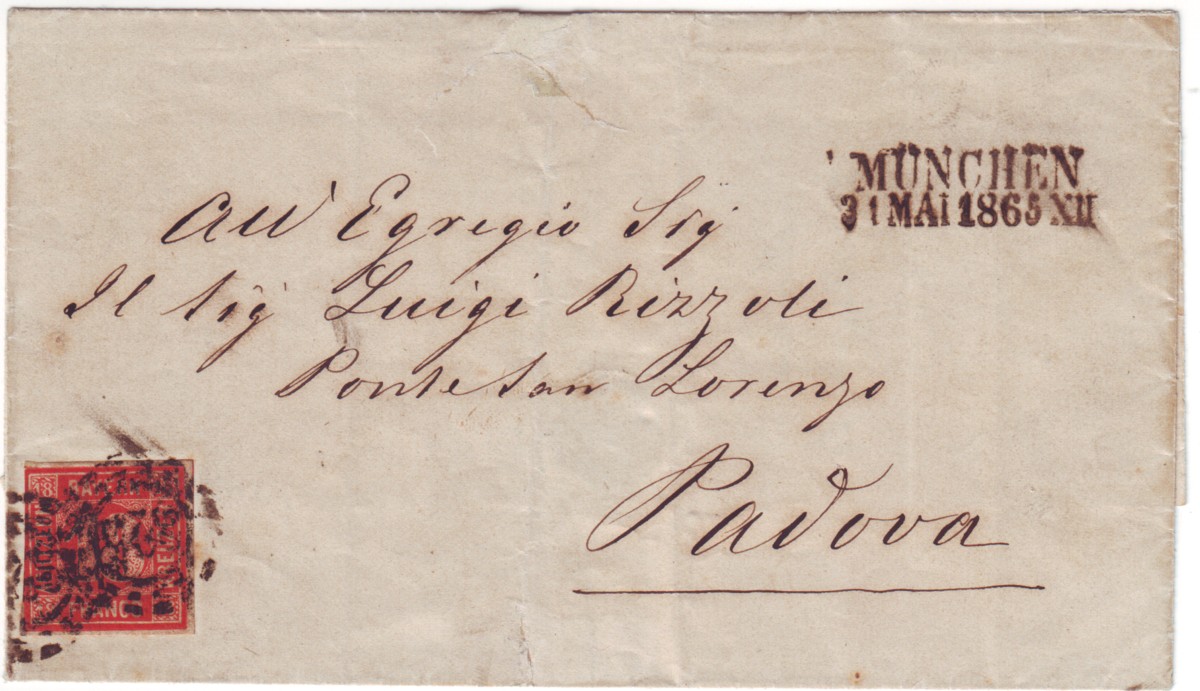 MÜNCHEN
31 MAI 1865 XII
All' Egregio Sig
Il Sig Luigi Rizzoli
Ponte San Lorenzo
Padova
BAYERN
FRANCO